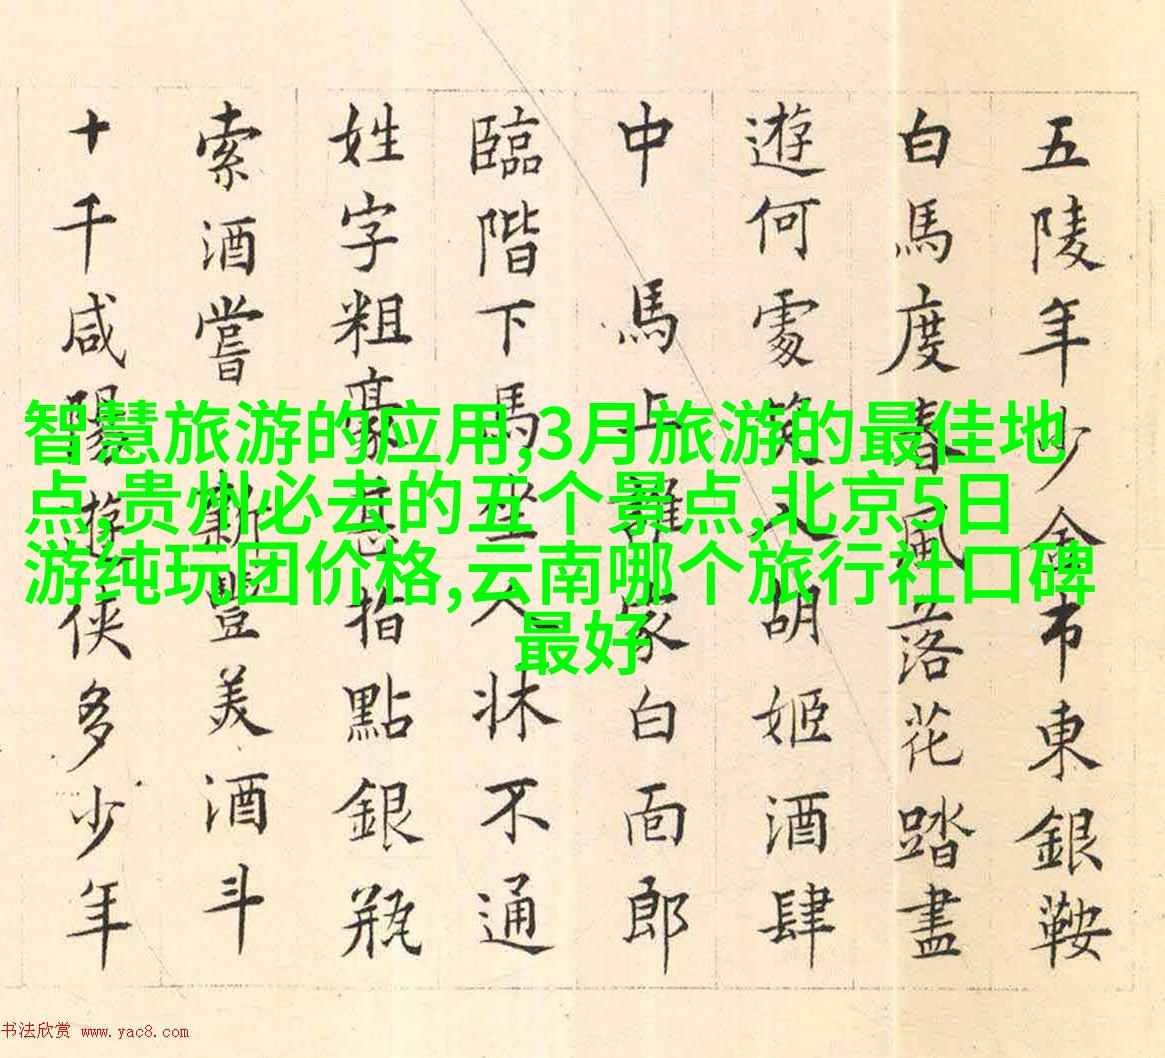 五陵年少金市東銀鞍
白馬度春風落花踏盡
遊何處笑入胡姬酒肆
中 馬上誰家白面郎
臨階下馬坐人牀不通
姓字粗豪甚指點銀瓶
索酒嘗 新豐美酒斗
十千咸陽遊俠多少年
智慧旅游的应用,3月旅游的最佳地
点,贵州必去的五个景点,北京5日
游纯玩团价格,云南哪个旅行社口碑
最好
书法欣赏 www.yac8.com